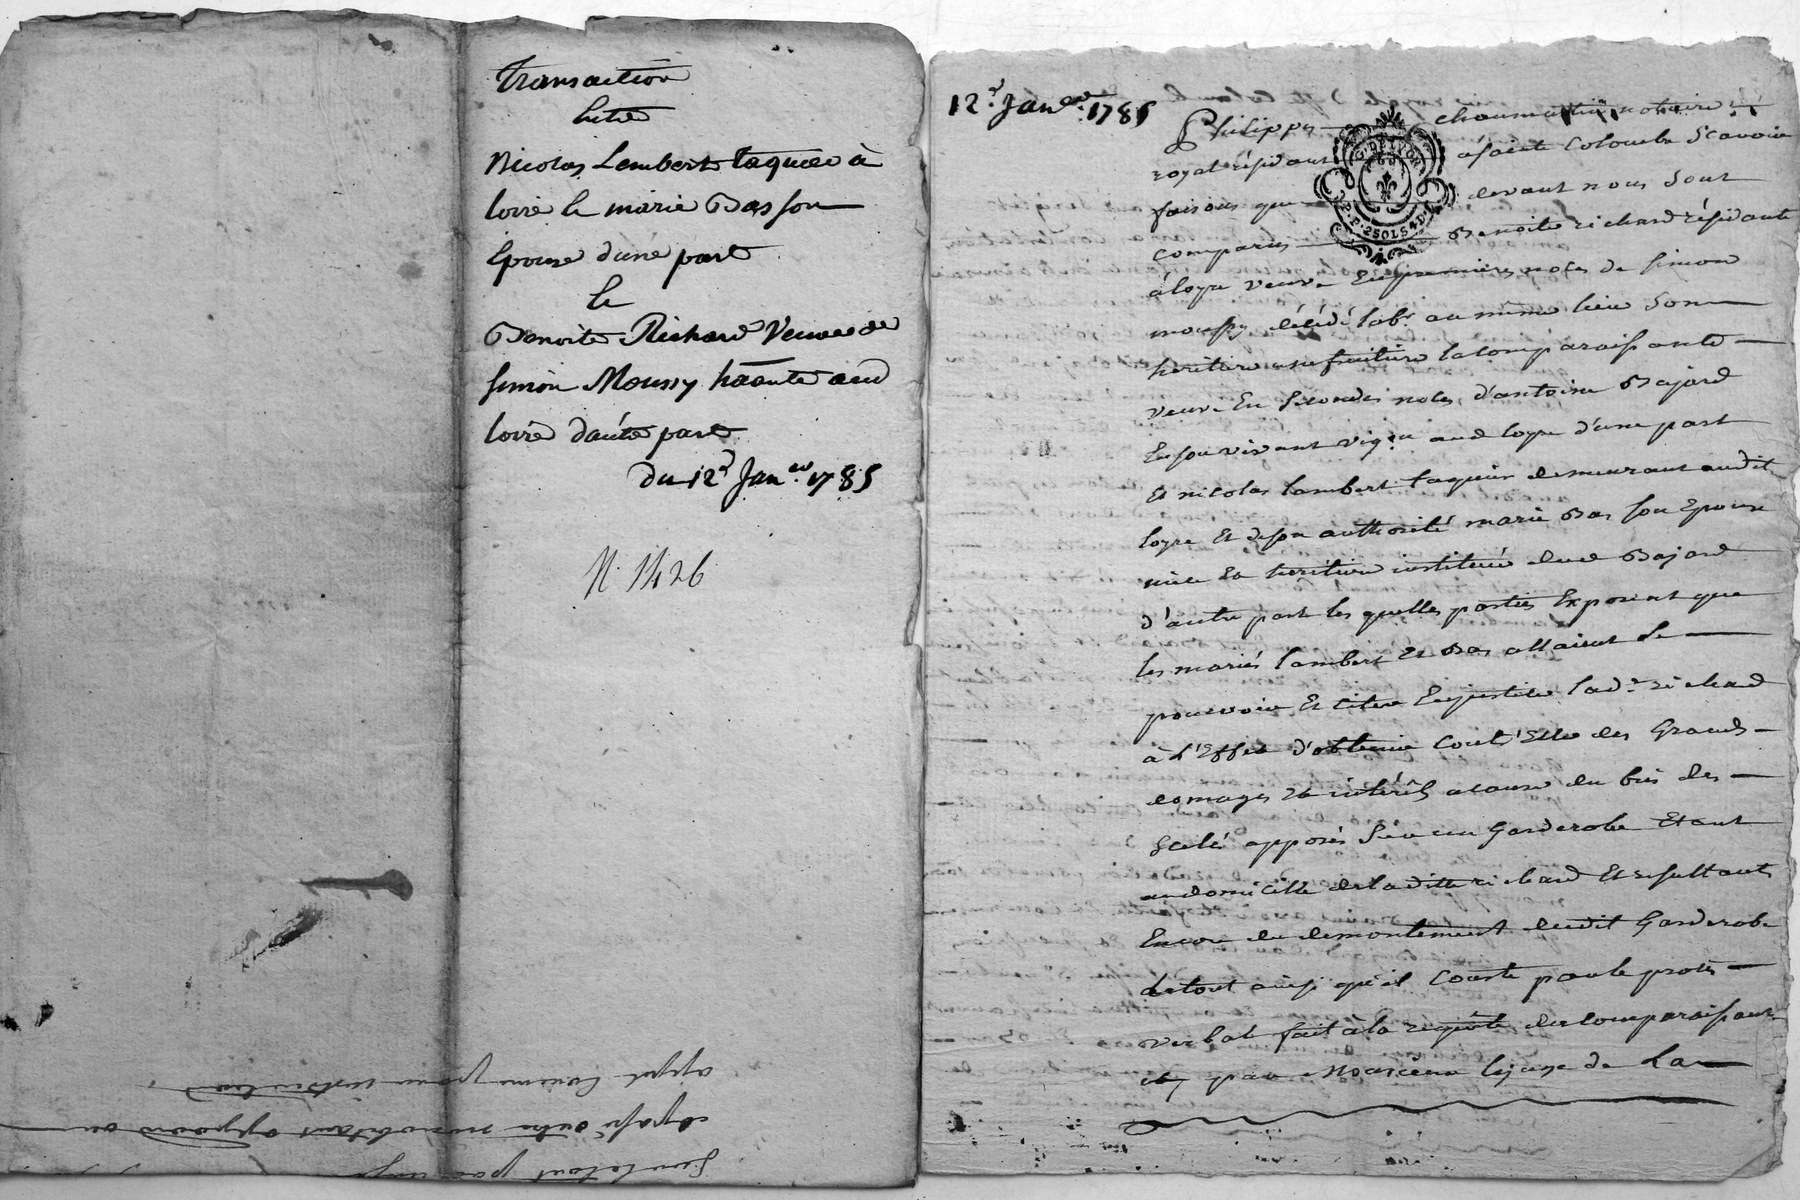 Transaction
Entre
Nicolas Lembert taqueur à
Loire & marie Bas son
Epouse d'une part
&
Benoite Richard Veuve de
Simon Moussy hãante aud
Loire d'aûte part
Du 12ᵉ Janᵉʳ 1785
N. 1426
12ᵉ Janᵉʳ 1785
Philippe chaumartin notaire
royal résidant à sainte Colombe Scavoir
faisons que devant nous sont
comparus Benoite richard résidante
à loyre veuve En premieres noces de simon
moussy décédé labʳ au même lieu son
heritiere usufruitiere la comparaissante
veuve En secondes noces d'antoine Bajard
En son vivant vigⁿ aud loyre d'une part
Et nicolas lambert taqueur demeurant audit
loyre Et de son authorité marie Bas son Epouse
niéce Et heritiere instituée dud Bajard
d'autre part les quelles parties Exposent que
les mariés lambert Et Bas allaient se
pourvoir Et citer En justice lad.ᵉ richard
à L'Effet d'obtenir Contr'Elle des Grands
domages Et intérêts a cause du bris des
Scelés apposés Sur un Garderobe Etant
au domicille de la ditte richard Et resultants
Encore du demontement dudit Garderobe
le tout ainsi qu'il Conste par le procès
verbal fait à la requête des comparaissants
par Monsieur le juge de La
G. DE LYON
P.P. 2 SOLS 4 D.